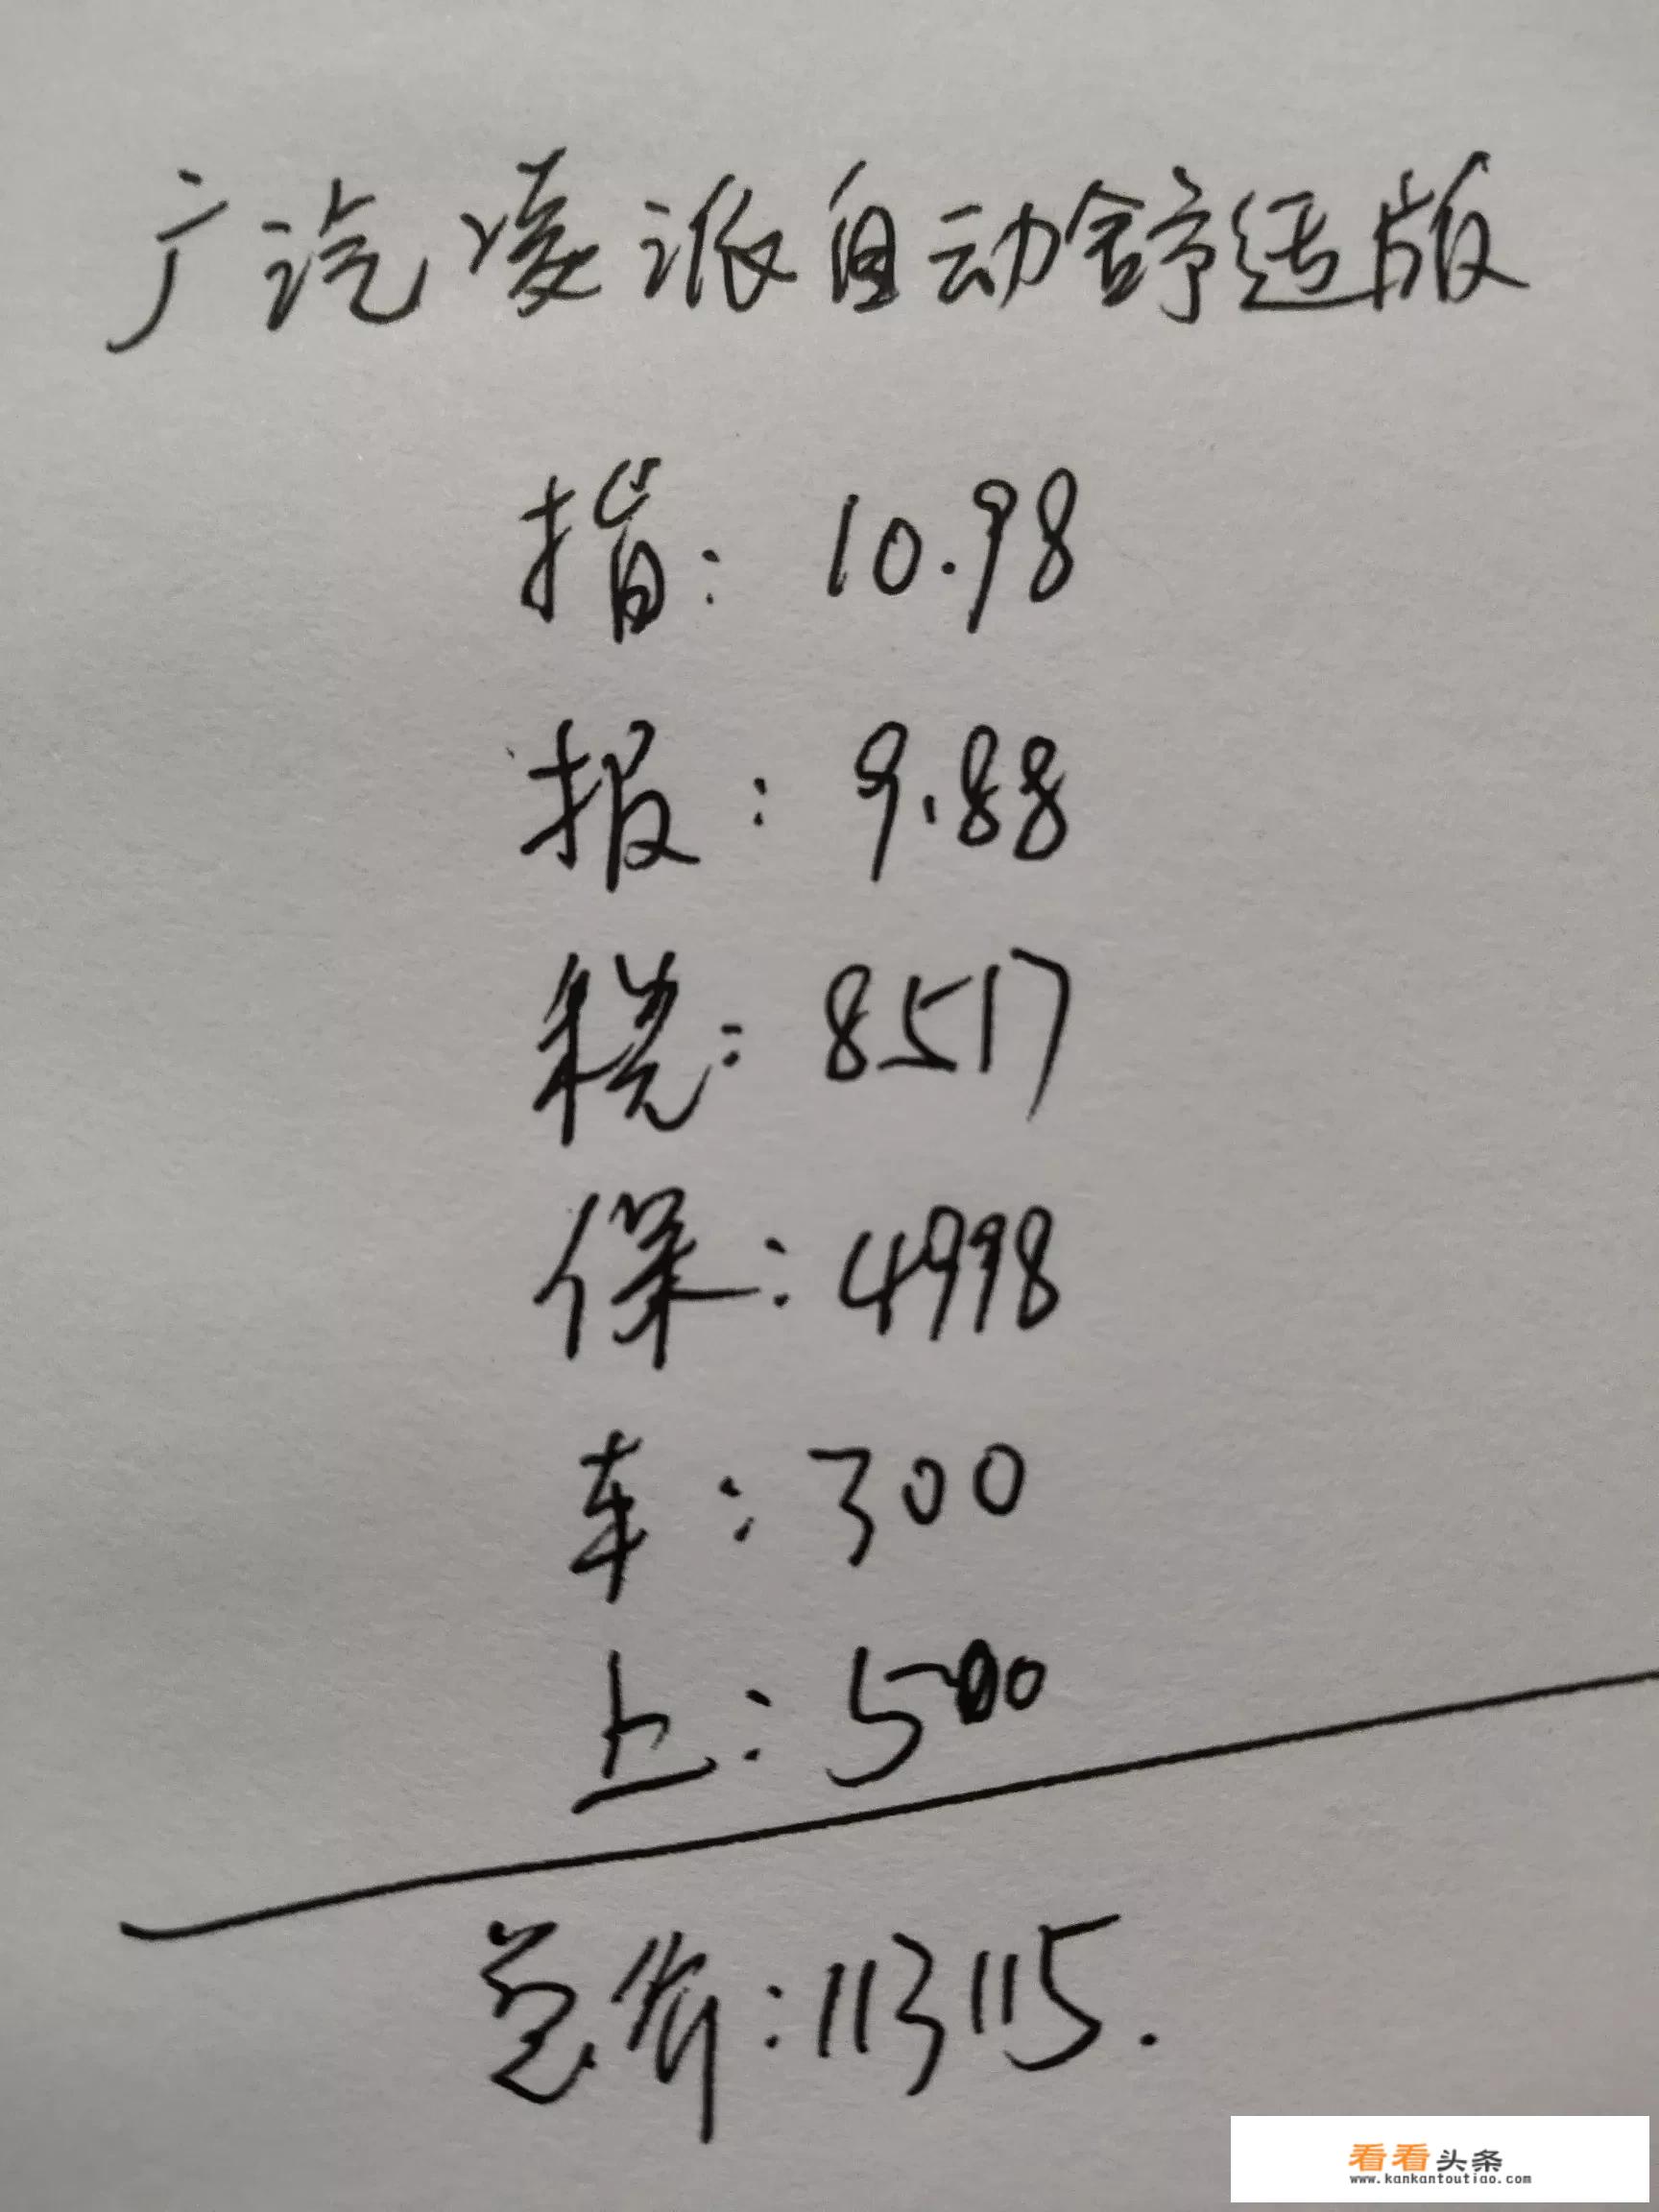 广汽凌派自动舒适版
指：10.98
报：9.88
税：8517
保：4998
车：300
上：500
总价：113115.
看看头条
www.kankantoutiao.com